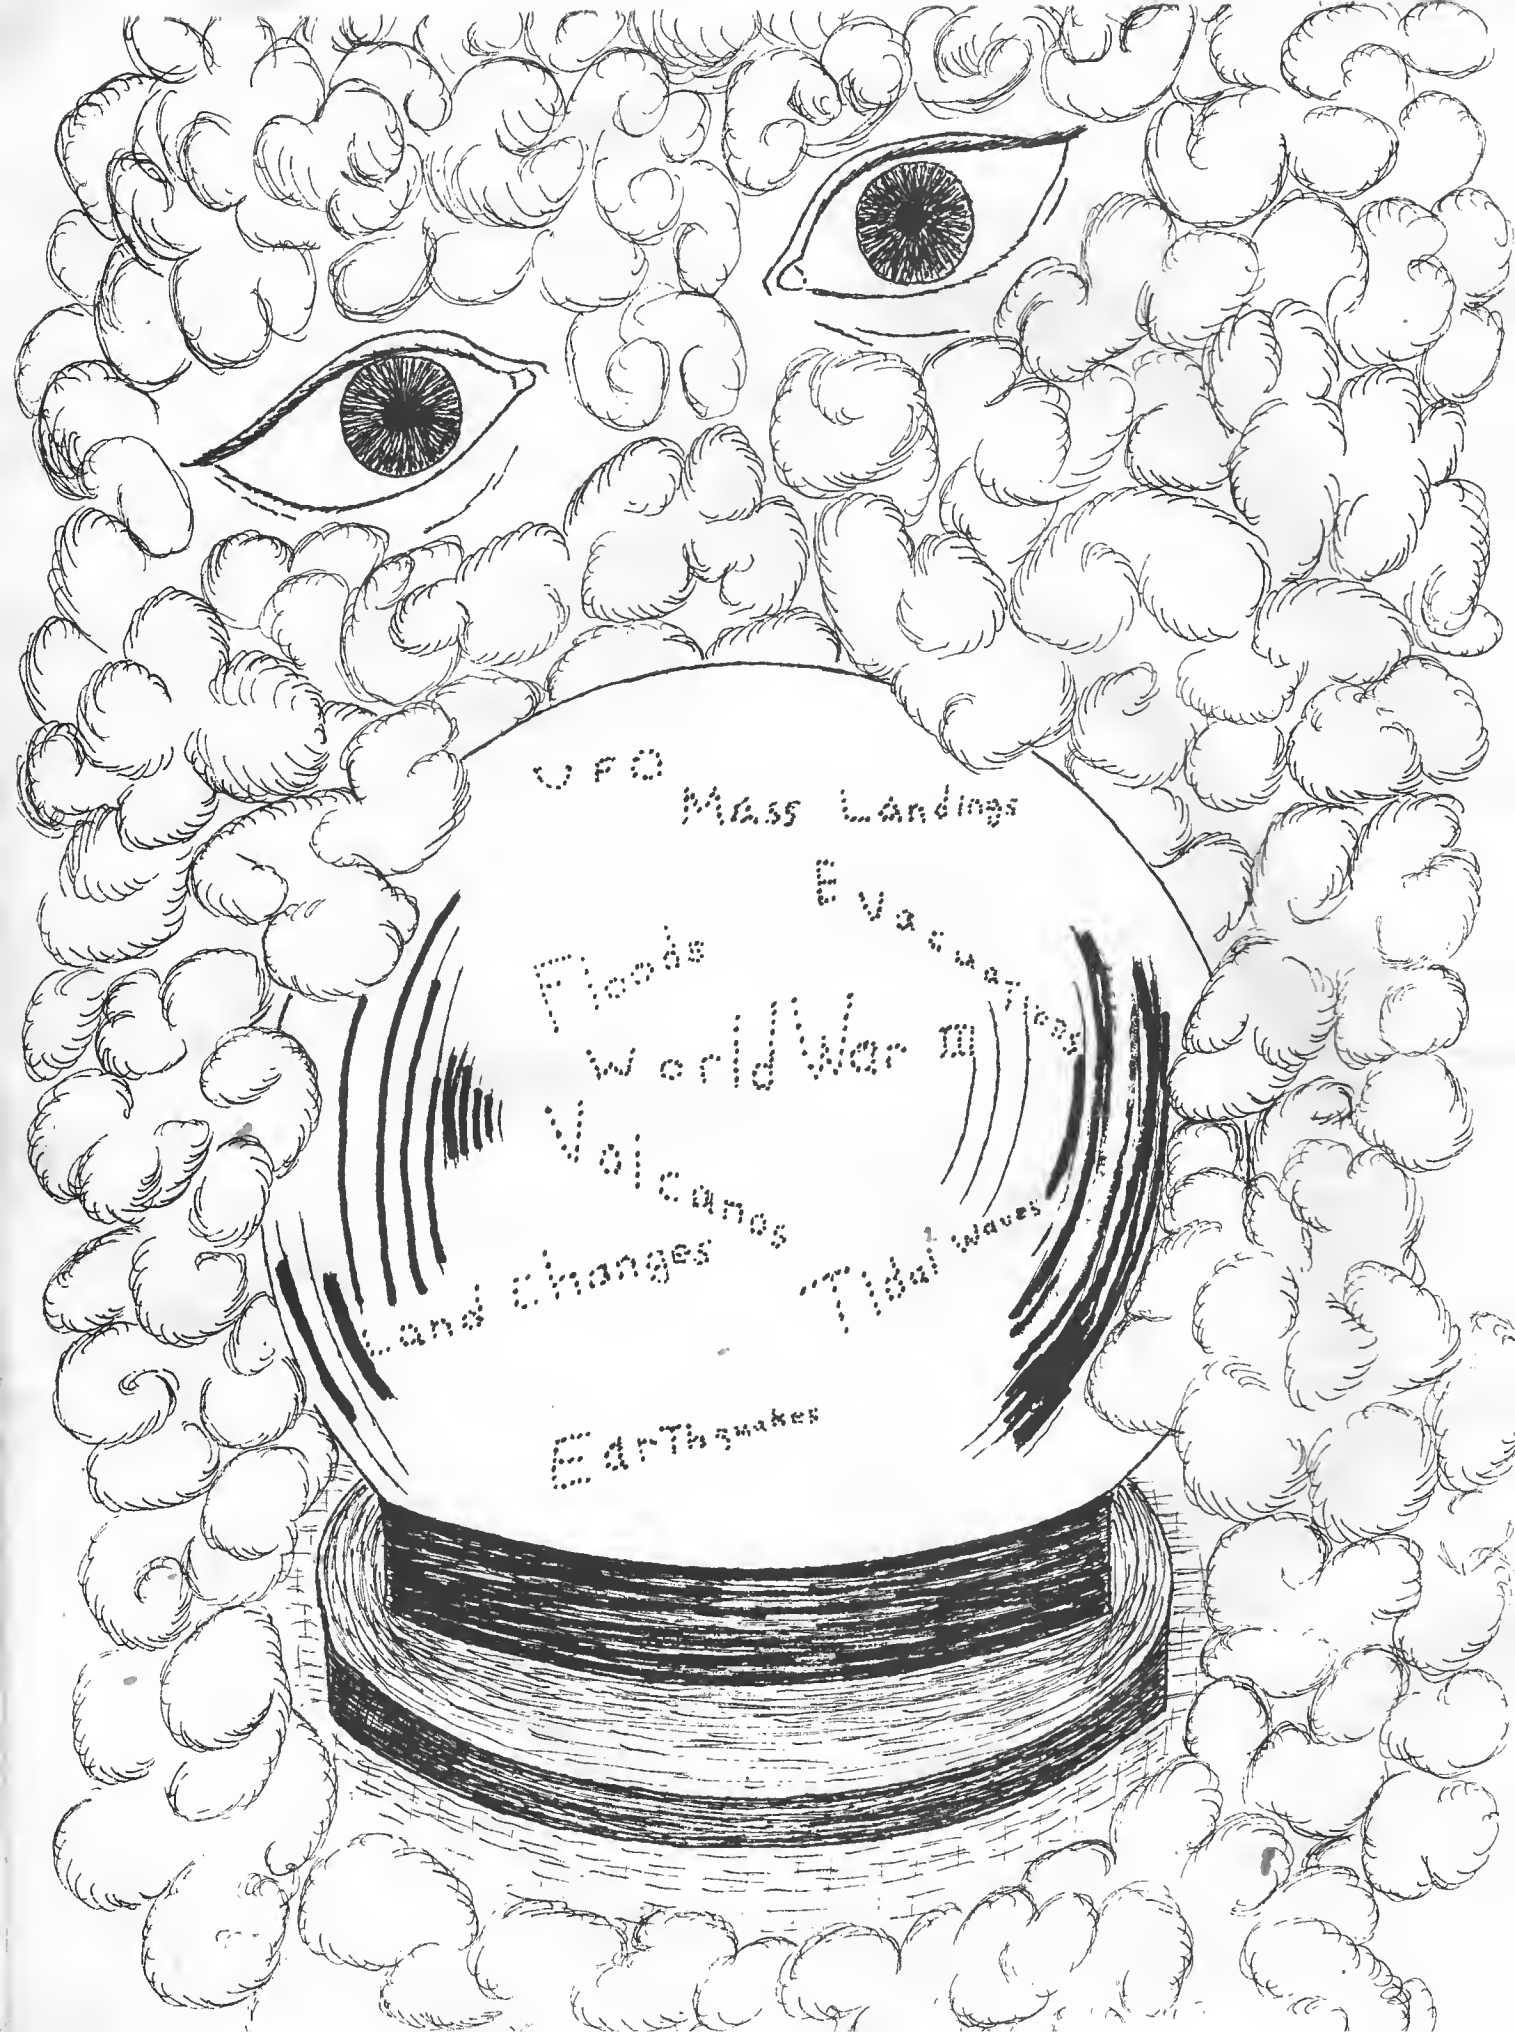 UFO
Mass Landings
Evacuations
Floods
World War III
Volcanos
Land changes
Tidal waves
Earthquakes